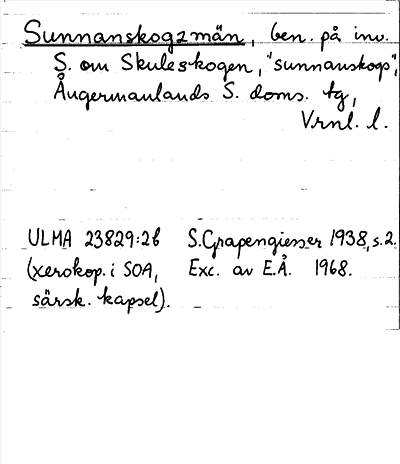 Sunnanskogsmän, ben. på inv.
S. om Skuleskogen, "sunnanskogs",
Ångermanlands S. doms. tg,
Vrnl. l.
ULMA 23829:26 S. Grapengiesser 1938, s. 2.
(xerokop. i SOA, Exc. av E.Å. 1968.
särsk. kapsel).